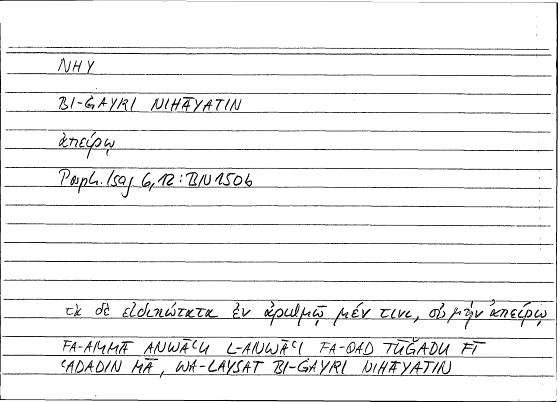 NHY
BI-ĠAYRI NIHĀYATIN
ἀπείρῳ
Porph. Isag 6,12 : BN 150b
τὰ δὲ εἰδικώτατα ἐν ἀριθμῷ μέν τινι, οὐ μὴν ἀπείρῳ
FA-AMMĀ ANWĀʿU L-ANWĀʿI FA-QAD TŪĞADU FĪ
ʿADADIN MĀ, WA-LAYSAT BI-ĠAYRI NIHĀYATIN